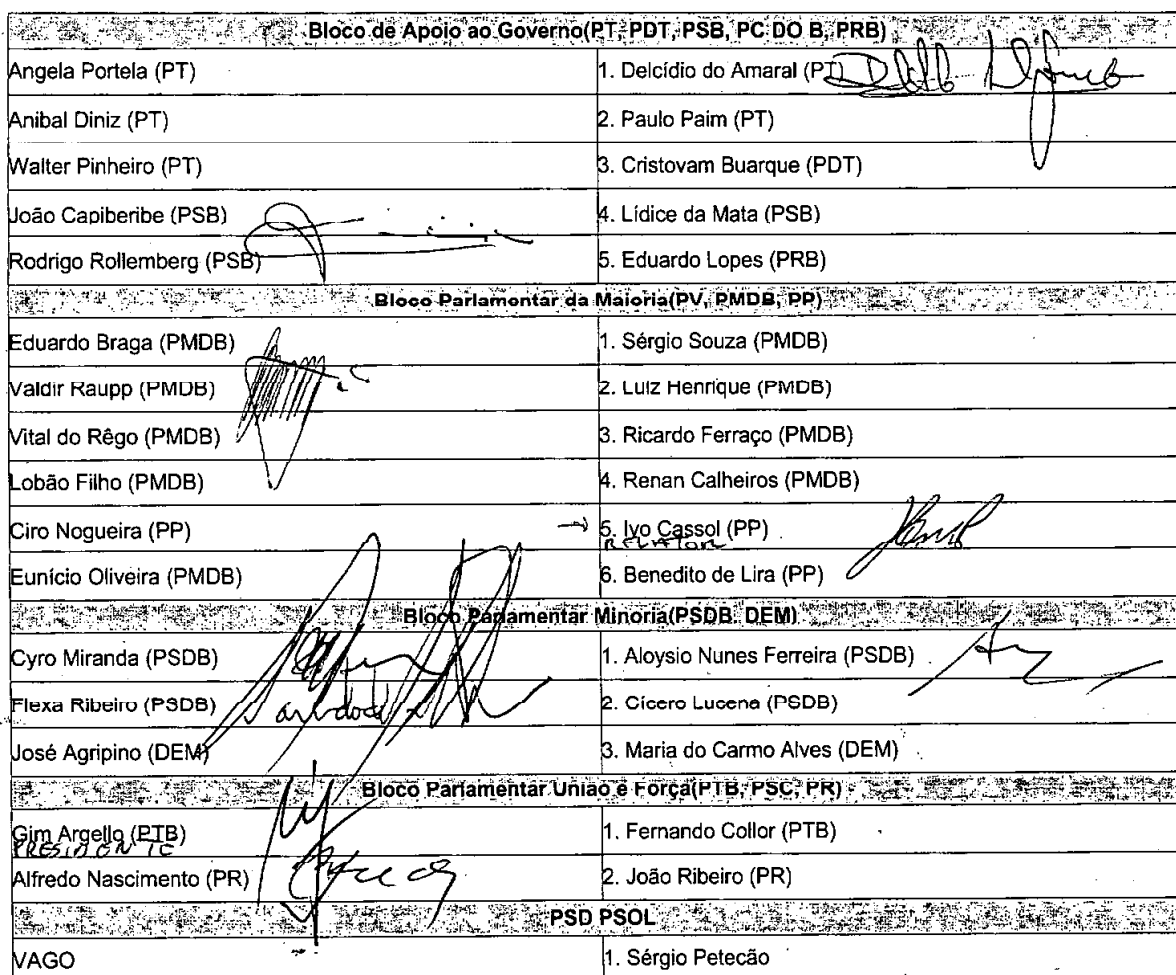 Bloco de Apoio ao Governo(PT, PDT, PSB, PC DO B, PRB)
Angela Portela (PT) 1. Delcídio do Amaral (PT)
Anibal Diniz (PT) 2. Paulo Paim (PT)
Walter Pinheiro (PT) 3. Cristovam Buarque (PDT)
João Capiberibe (PSB) 4. Lídice da Mata (PSB)
Rodrigo Rollemberg (PSB) 5. Eduardo Lopes (PRB)
Bloco Parlamentar da Maioria(PV, PMDB, PP)
Eduardo Braga (PMDB) 1. Sérgio Souza (PMDB)
Valdir Raupp (PMDB) 2. Luiz Henrique (PMDB)
Vital do Rêgo (PMDB) 3. Ricardo Ferraço (PMDB)
Lobão Filho (PMDB) 4. Renan Calheiros (PMDB)
Ciro Nogueira (PP) 5. Ivo Cassol (PP)
RELATOR
Eunício Oliveira (PMDB) 6. Benedito de Lira (PP)
Bloco Parlamentar Minoria(PSDB, DEM)
Cyro Miranda (PSDB) 1. Aloysio Nunes Ferreira (PSDB)
Flexa Ribeiro (PSDB) 2. Cícero Lucena (PSDB)
José Agripino (DEM) 3. Maria do Carmo Alves (DEM)
Bloco Parlamentar União e Força(PTB, PSC, PR)
Gim Argello (PTB) 1. Fernando Collor (PTB)
PRESIDENTE
Alfredo Nascimento (PR) 2. João Ribeiro (PR)
PSD PSOL
VAGO 1. Sérgio Petecão